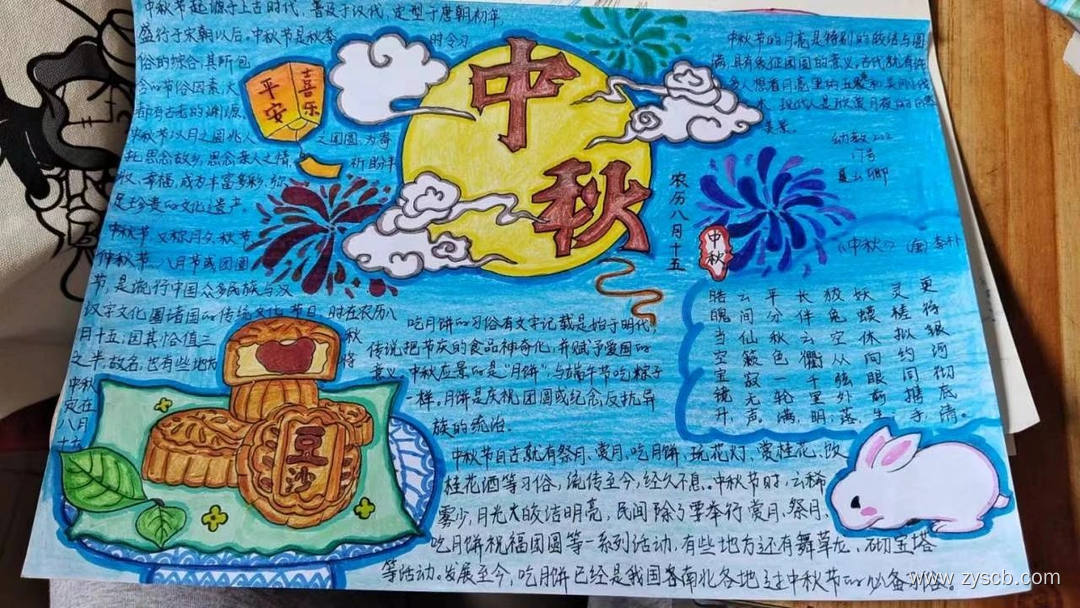 中秋节起源于上古时代，普及于汉代，定型于唐朝初年，
盛行于宋朝以后。中秋节是秋季时令习
俗的综合，其所包
含的节俗因素，大
都有古老的渊源。
中秋节以月之圆兆人之团圆，为寄
托思念故乡，思念亲人之情，祈盼丰
收、幸福，成为丰富多彩、弥
足珍贵的文化遗产。
中秋节，又称月夕、秋节、
仲秋节、八月节或团圆
节，是流行中国众多民族与汉
汉字文化圈诸国的传统文化节日，时在农历八
月十五；因其恰值三秋
之半，故名，也有些地方将
中秋
定在
八月
十五
平安
喜乐
中秋
农历八月十五
中秋节的月亮是特别的皎洁与圆
满，具有象征团圆的意义。古代就有许
多人想看月亮里的玉
美景。
幼教
17号
中秋
《中秋》（唐）李朴
皓魄当空宝镜升，
云间仙籁寂无声，
平分秋色一轮满，
长伴云衢千里明；
狡兔空从弦外落，
妖蟆休向眼前生，
灵槎拟约同携手，
更待银河彻底清。
吃月饼的习俗有文字记载是始于明代，
传说把节庆的食品神奇化，并赋予爱国的
意义。中秋应景的是“月饼”与端午节吃粽子
一样，月饼是庆祝团圆或纪念反抗异
族的统治。
中秋节自古就有祭月、赏月、吃月饼、玩花灯、赏桂花、饮
桂花酒等习俗，流传至今，经久不息。中秋节时，云稀
雾少，月光大的皎洁明亮，民间除了要举行赏月、祭月、
吃月饼祝福团圆等一系列活动，有些地方还有舞草龙，砌宝塔
等活动。发展至今，吃月饼已经是我国各南北各地过中秋节的必备习俗。
豆沙
www.zyscb.com